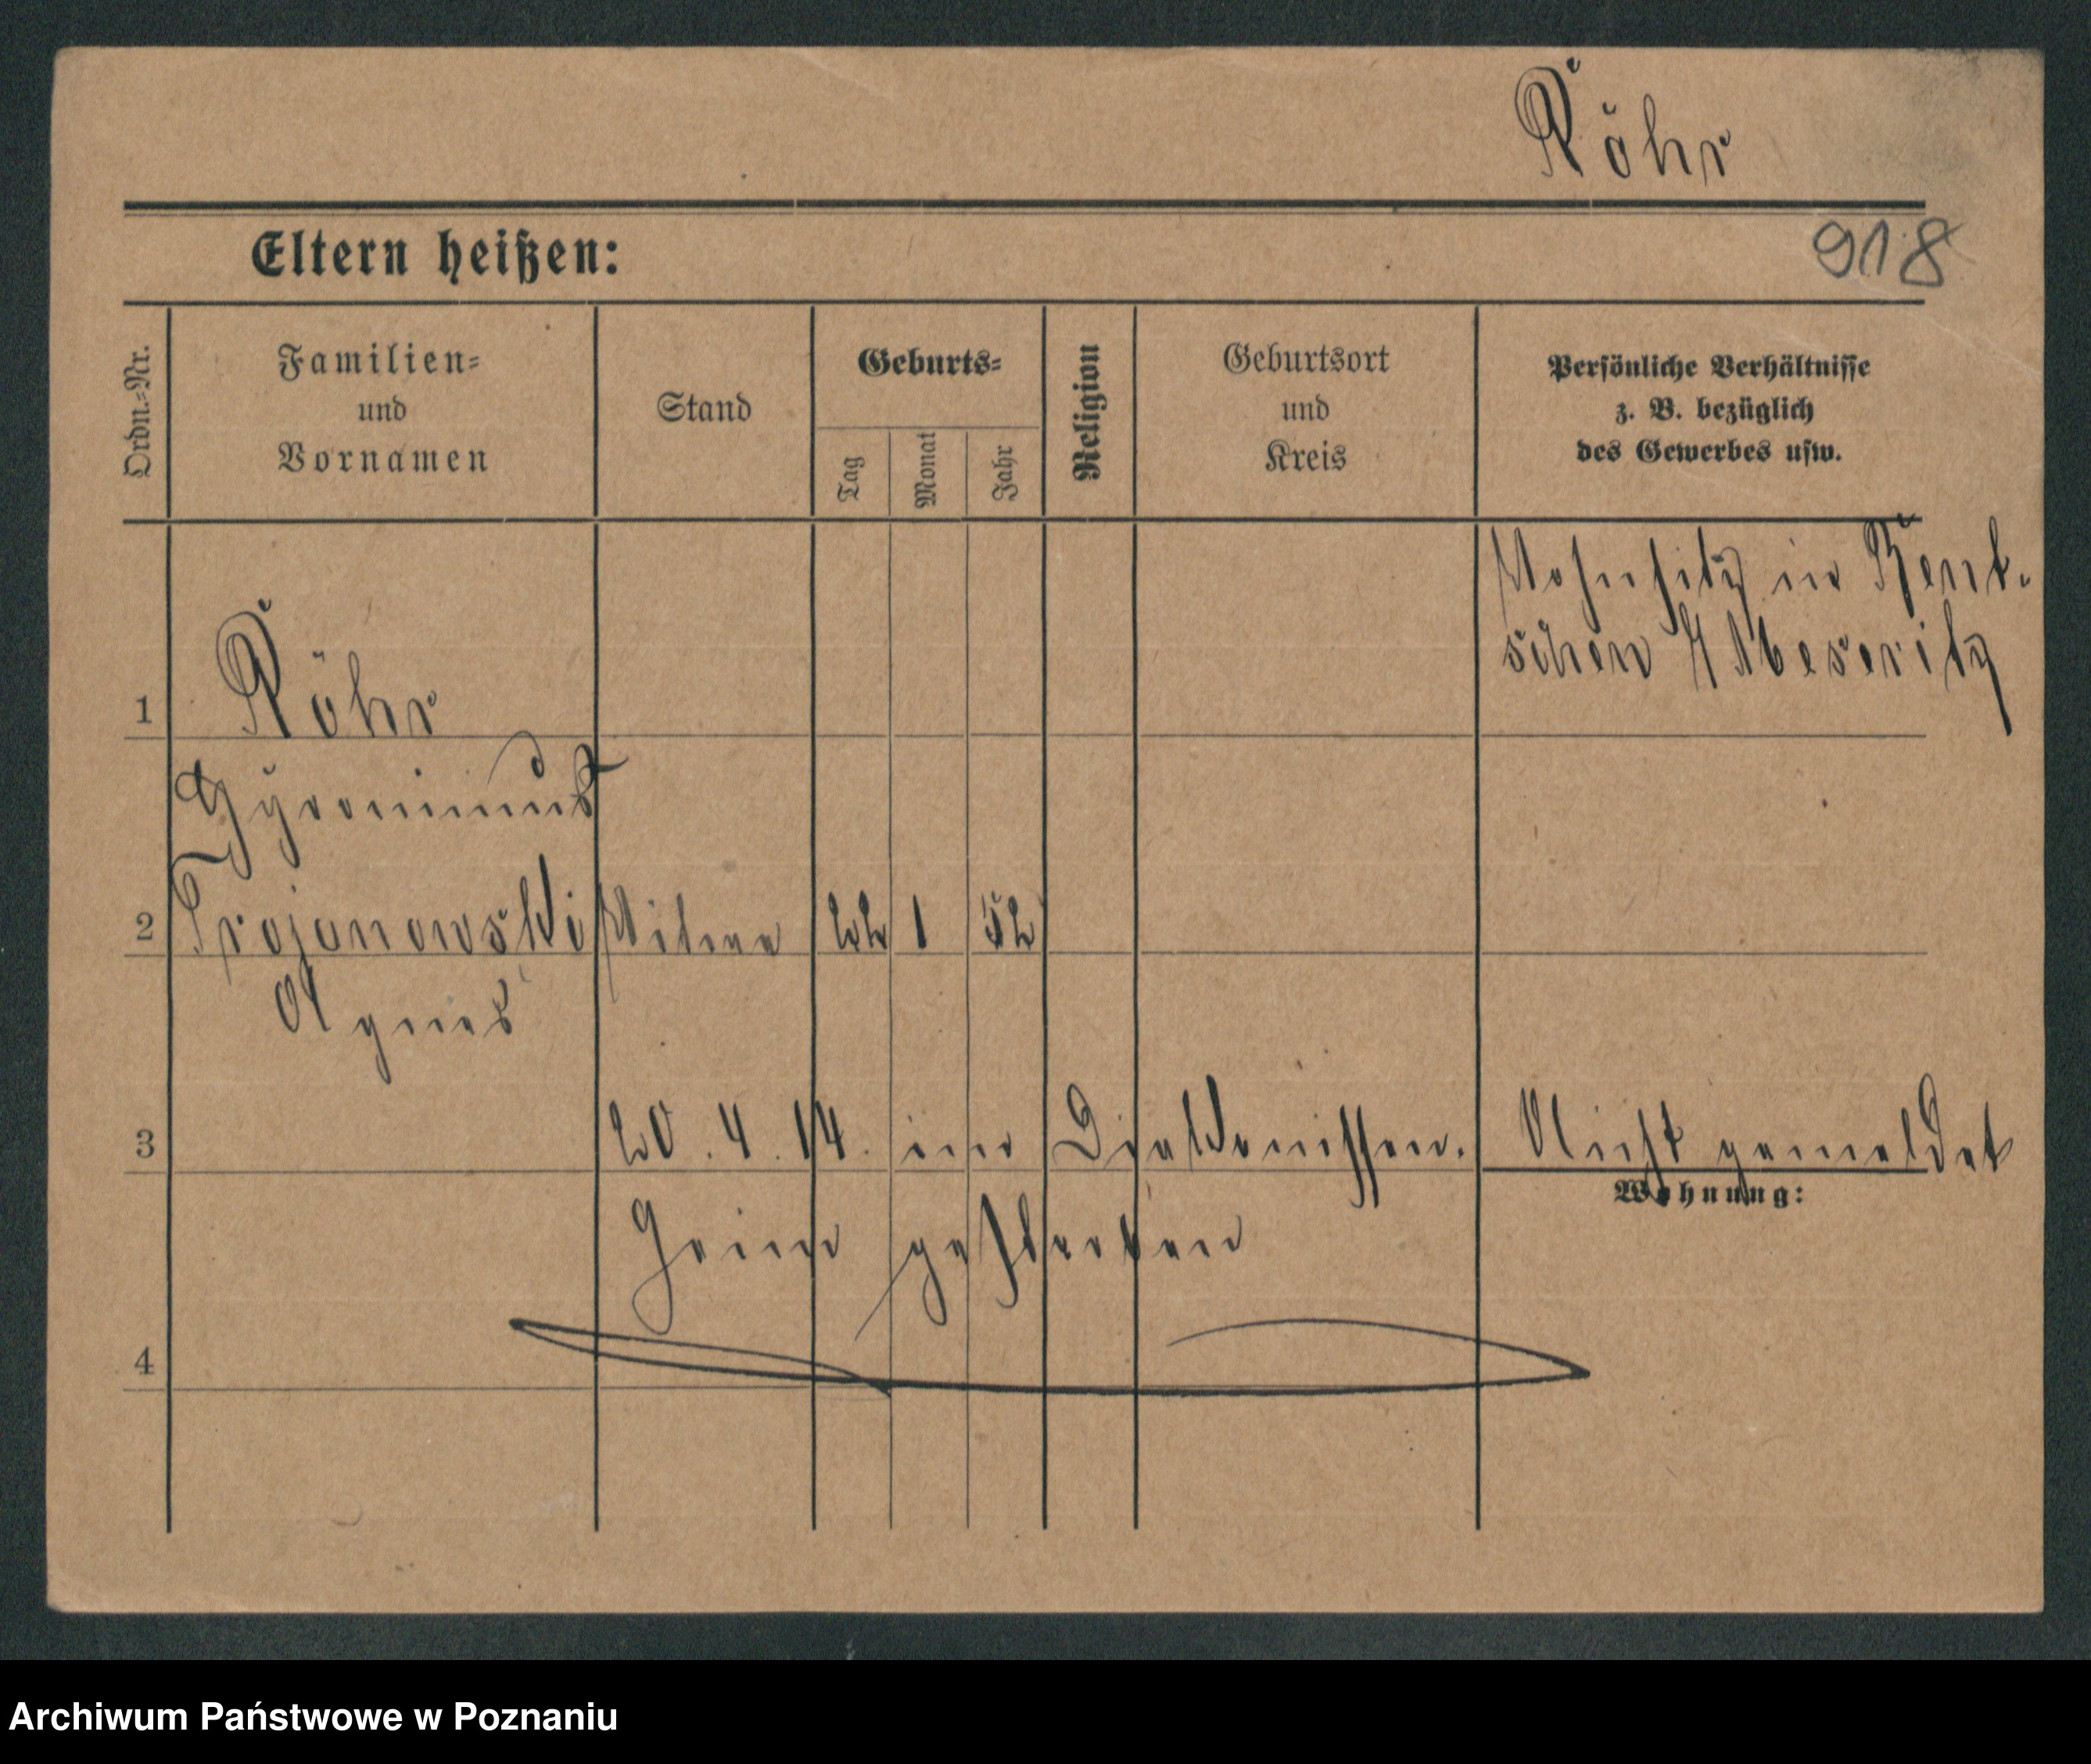 Röhr
Eltern heißen:
918
Ordn.-Nr.
Familien-
und
Vornamen
Stand
Geburts-
Tag
Monat
Jahr
Religion
Geburtsort
und
Kreis
Persönliche Verhältnisse
z. B. bezüglich
des Gewerbes usw.
Wohnsitz in Bent-
schen / Meseritz
1 Röhr
Hyronimus
2 Trojanowski Witwe 22 1 52
Agnes
3 20. 4. 14. im Diakonissen. Nicht gemeldet
Wohnung:
Heim gestorben
4
Archiwum Państwowe w Poznaniu